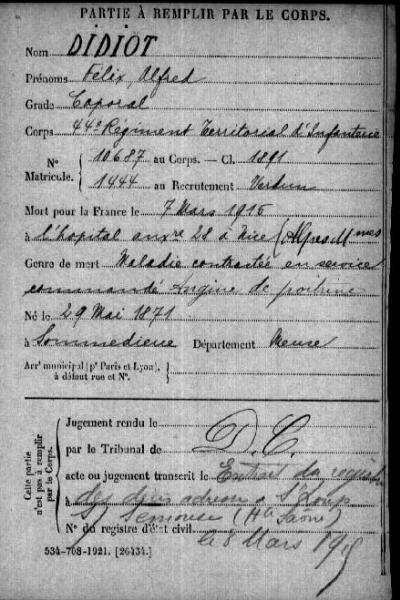 PARTIE À REMPLIR PAR LE CORPS.
Nom DIDIOT
Prénoms Félix Alfred
Grade Caporal
Corps 44e Régiment Territorial d'Infanterie
N° Matricule. 10687 au Corps. — Cl. 1891
1444 au Recrutement Verdun
Mort pour la France le 7 Mars 1915
à l'hôpital auxre 28 à Nice (Alpes Mmes
Genre de mort Maladie contractée en service
commandé Angine de poitrine
Né le 29 Mai 1871
à Sommedieue Département Meuse
Arrt municipal (pr Paris et Lyon),
à défaut rue et N°.
Cette partie n'est pas à remplir par le Corps.
Jugement rendu le
par le Tribunal de D. C.
acte ou jugement transcrit le Extrait du registre
des à St Loup
s/ Semouse (Hte Saône)
N° du registre d'état civil le 8 Mars 1915
534-708-1921. [26434.]